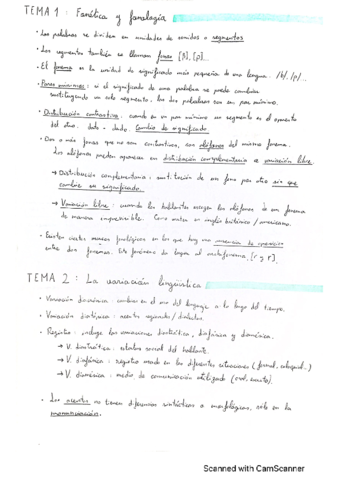 TEMA 1: Fonética y fonología
· Las palabras se dividen en unidades de sonidos o segmentos
· Los segmentos también se llaman fonos [β], [p]...
· El fonema es la unidad de significado más pequeña de una lengua. /b/, /p/...
· Pares mínimos: si el significado de una palabra se puede cambiar
sustituyendo un solo segmento, las dos palabras son un par mínimo.
· Distribución contrastiva: cuando en un par mínimo un segmento es el opuesto
del otro. dato - dado. Cambio de significado.
· Dos o más fonos que no son contrastivos, son alófonos del mismo fonema.
Los alófonos pueden aparecer en distribución complementaria o variación libre
→ Distribución complementaria: sustitución de un fono por otro sin que
cambie su significado.
→ Variación libre: cuando los hablantes escogen los alófonos de un fonema
de manera impredecible. Como en inglés británico / americano.
· Existen ciertos marcos fonológicos en los que hay una de oposición
entre dos fonemas. Este fenómeno da lugar al archifonema. [r y ɾ].
TEMA 2: La variación lingüística
· Variación diacrónica: cambios en el uso del lenguaje a lo largo del tiempo.
· Variación diatópica: acentos regionales / dialectos.
· Registro: incluye las variaciones diastrática, diafásica y diamésica.
→ V. diastrática: estatus social del hablante.
→ V. diafásica: registro usado en las diferentes situaciones (formal, coloquial..)
→ V. diamésica: medio de comunicación utilizado (oral, escrito).
· Los acentos no tienen diferencias sintácticas o morfológicas, sólo en la
pronunciación.
Scanned with CamScanner